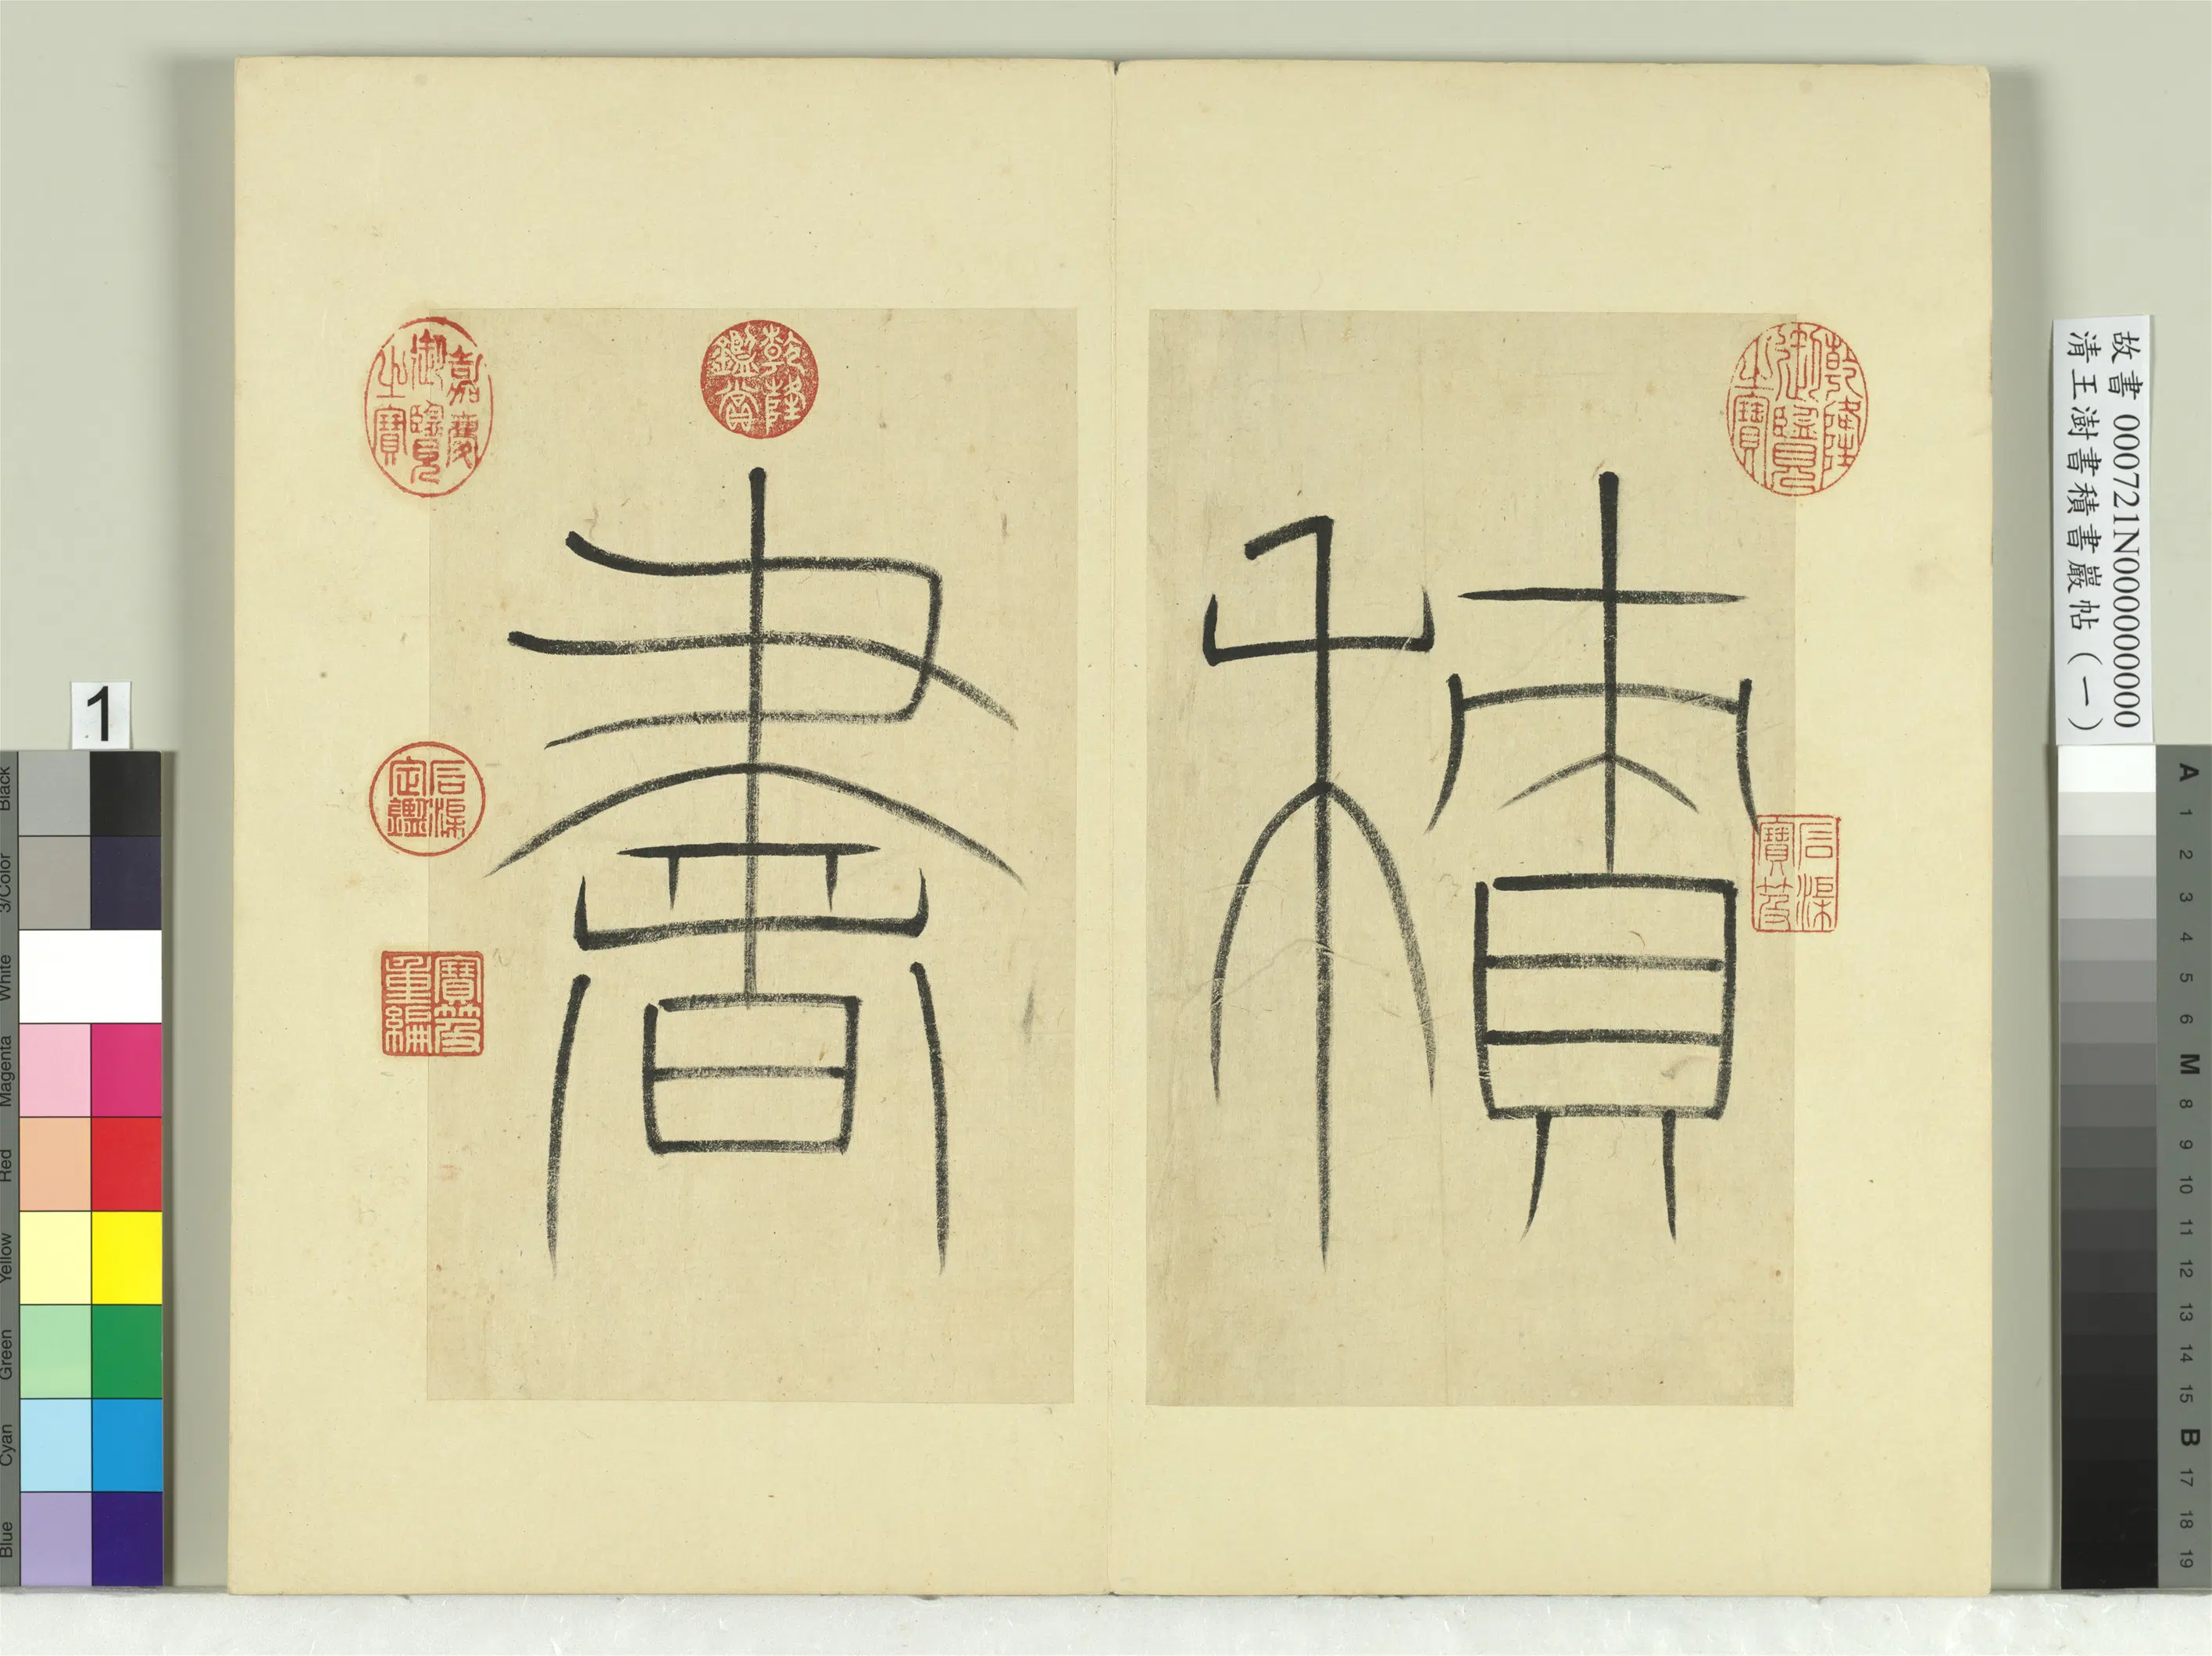 故書 000721N000000000
清王澍書積書巖帖（一）
乾隆御覽之寶
積
石渠寶笈
乾隆鑑賞
書
嘉慶御覽之寶
石渠定鑑
寶笈重編
1
Black
3/Color
White
Magenta
Red
Yellow
Green
Cyan
Blue
A
1
2
3
4
5
6
M
8
9
10
11
12
13
14
15
B
17
18
19